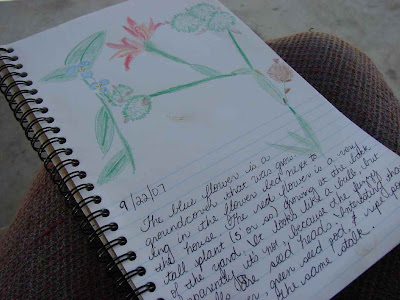 9/22/07
The blue flower is a
groundcover that was grow-
ing in the flower bed next to
the house. The red flower is a very
tall plant (5 or so) growing at the back
of the yard. It looks like a bulb, but
apparently it's not because the funny
the seed heads. Interesting that
green seed pod & super
the same stalk.